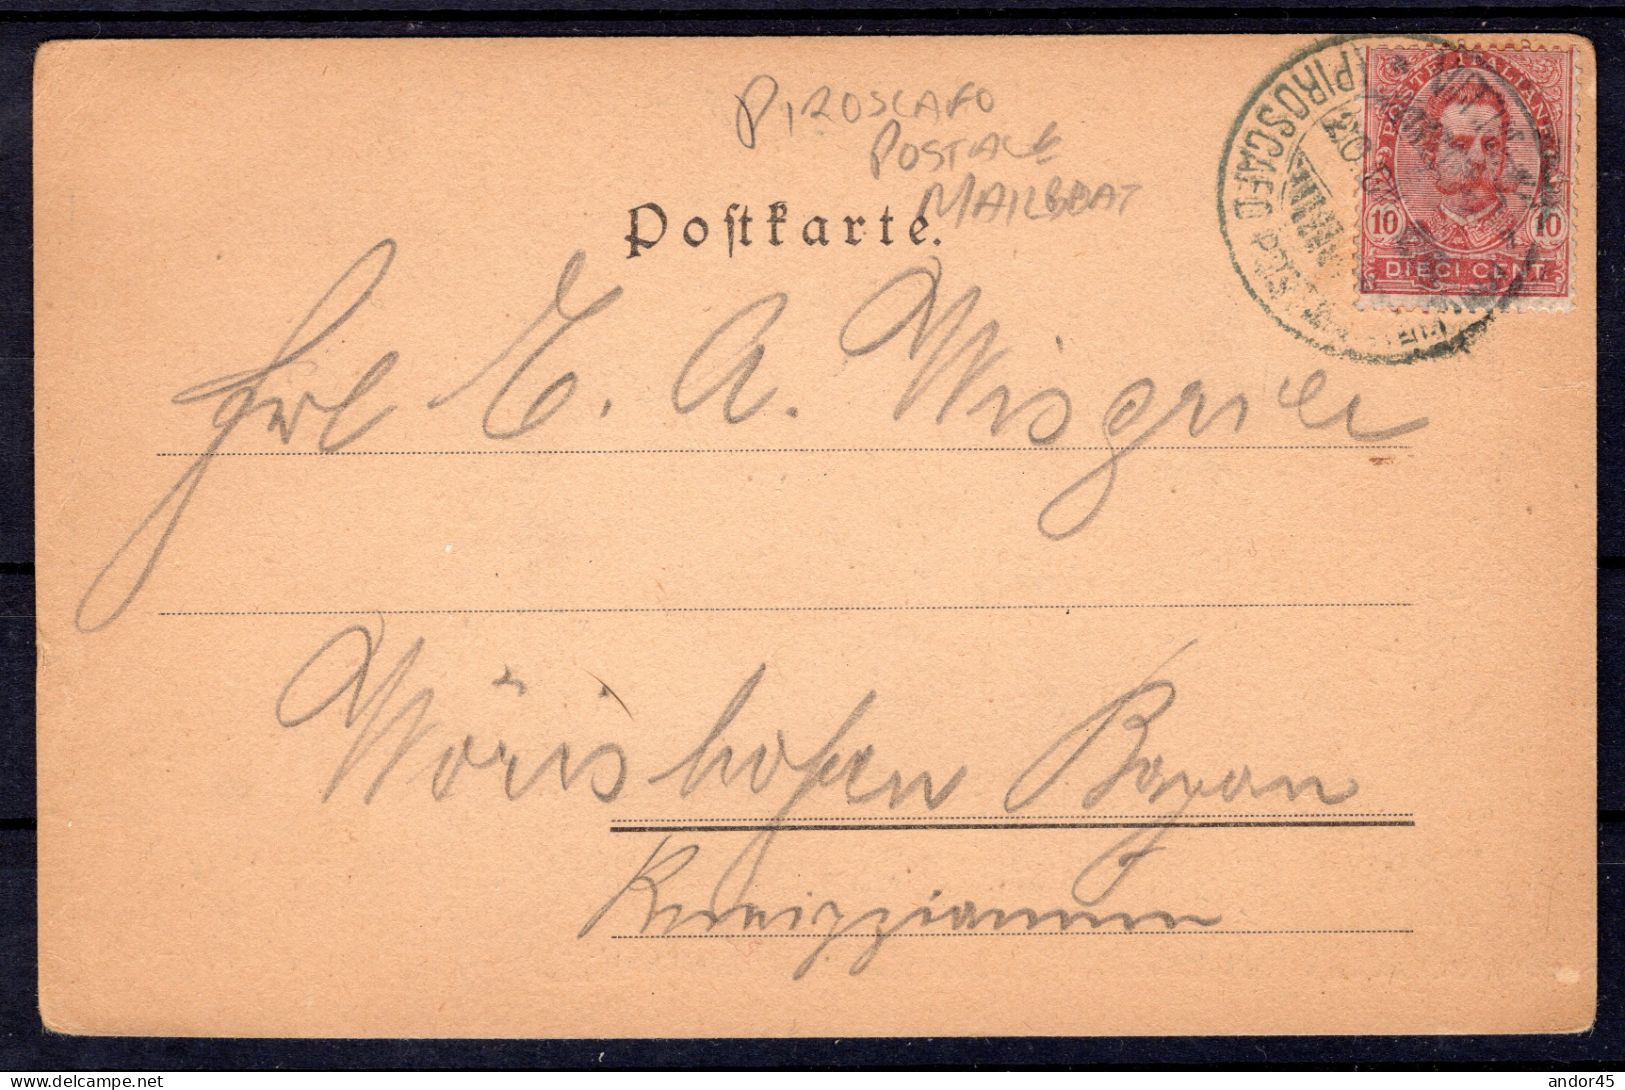 PIROSCAFO
POSTALE
MAILBOAT
Postkarte.
PIROSCAFO POSTALE
POSTE ITALIANE
10 10
DIECI CENT.
Frl E. A. Wisgrill
Wörishofen Bayern
Kneippianum
delcampe.net
andor45